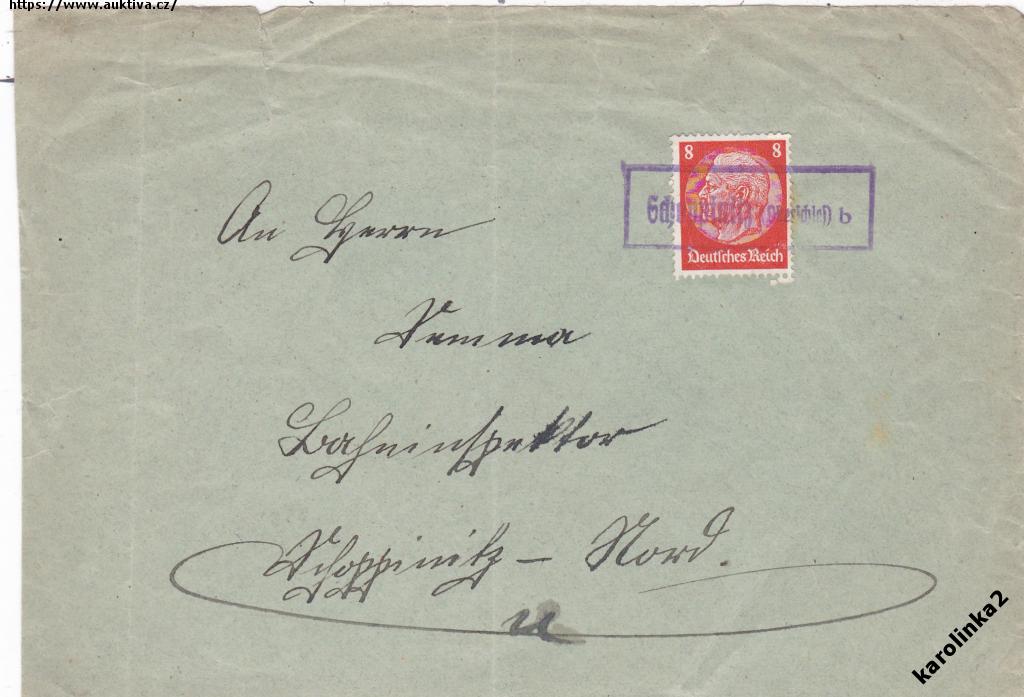 https://www.auktiva.cz/
8 8
(Oberschles) b
Deutsches Reich
An Herrn
Semma
Bahninspektor
Schoppinitz - Nord.
karolinka2